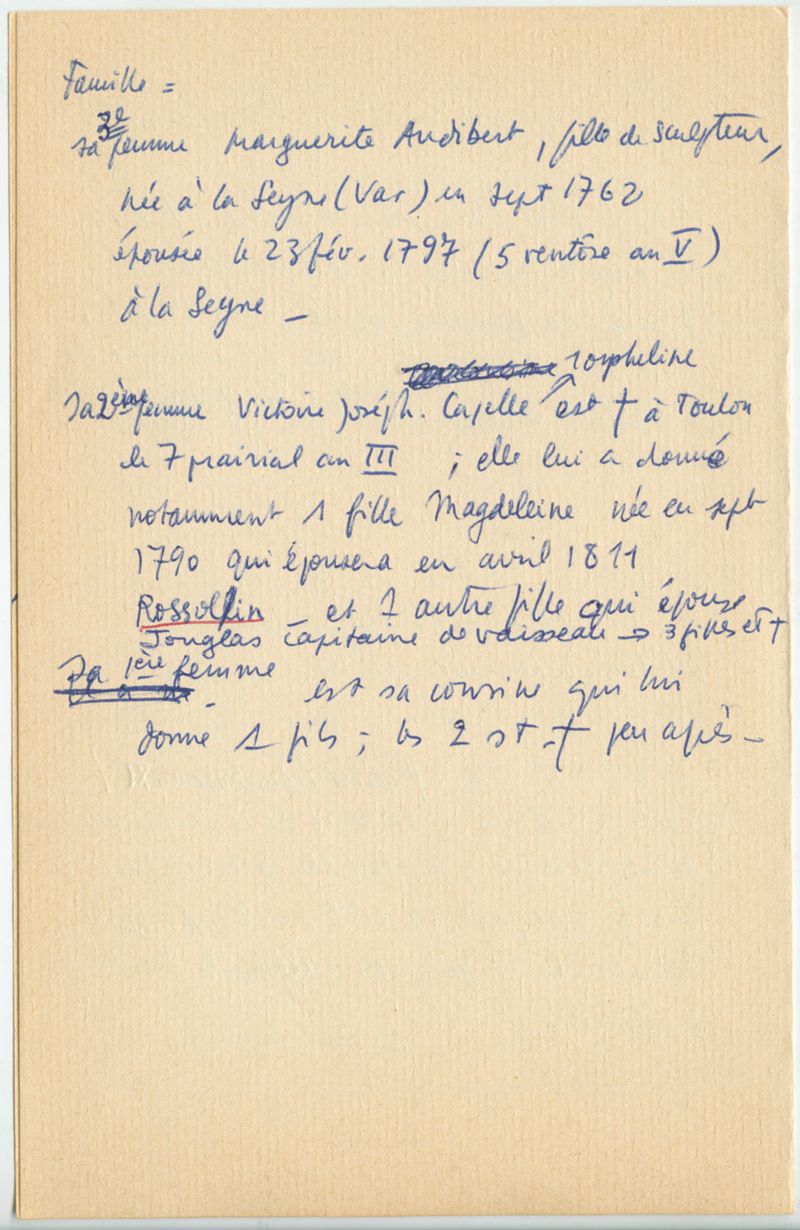 Famille =
sa 3e femme Marguerite Audibert, fille de sculpteur,
née à la Seyne (Var) en sept 1762
épousée le 23 fév. 1797 (5 ventôse an V)
à la Seyne –
orpheline
sa 2ème femme Victoire Joséph. Capelle est † à Toulon
le 7 prairial an III ; elle lui a donné
notamment 1 fille Magdeleine née en sept
1790 qui épousera en avril 1811
Rossollin – et 1 autre fille qui épouse
Jouglas capitaine de vaisseau → 3 filles et †
Sa 1ère femme
est sa cousine qui lui
donne 1 fils ; les 2 st † peu après –